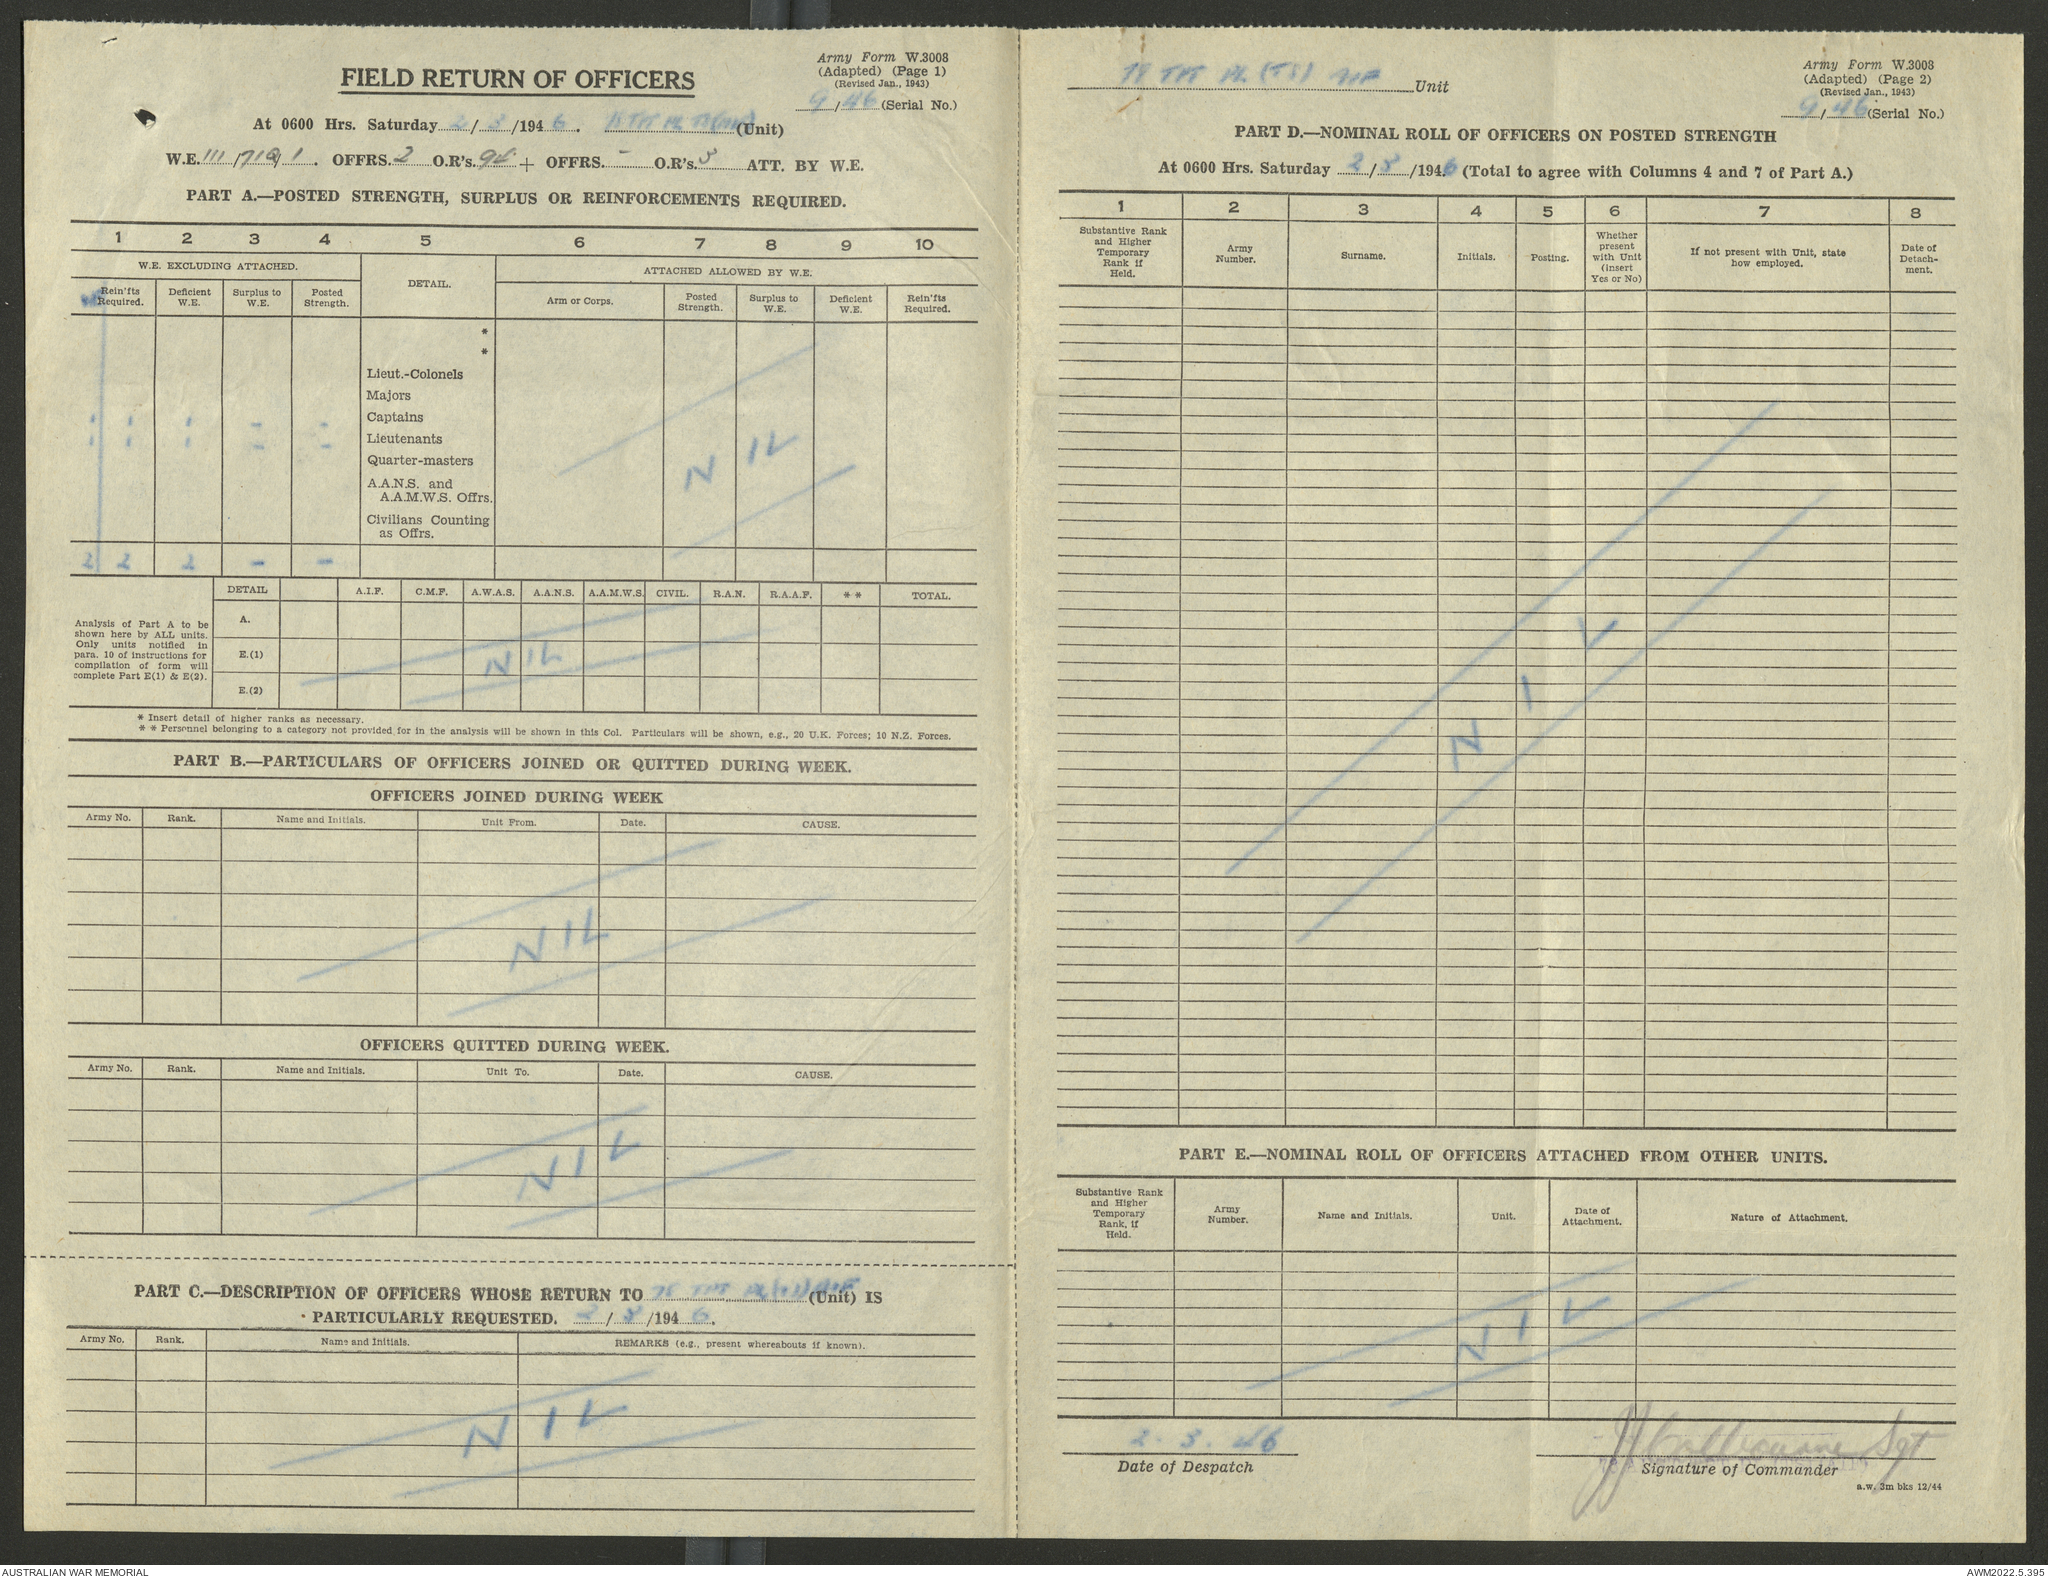 Army Form W.3008
(Adapted) (Page 1)
(Revised Jan., 1943)
FIELD RETURN OF OFFICERS
9/46 (Serial No.)
At 0600 Hrs. Saturday 2/3/1946. (Unit)
W.E. 111/ OFFRS. 2 O.R's. 94 + OFFRS. - O.R's. 3 ATT. BY W.E.
PART A.—POSTED STRENGTH, SURPLUS OR REINFORCEMENTS REQUIRED.
1 2 3 4 5 6 7 8 9 10
W.E. EXCLUDING ATTACHED. DETAIL. ATTACHED ALLOWED BY W.E.
Rein'fts Required. Deficient W.E. Surplus to W.E. Posted Strength. Arm or Corps. Posted Strength. Surplus to W.E. Deficient W.E. Rein'fts Required.
*
*
Lieut.-Colonels
Majors
Captains
Lieutenants
Quarter-masters
A.A.N.S. and
A.A.M.W.S. Offrs.
Civilians Counting
as Offrs.
NIL
2 2 2 - -
DETAIL A.I.F. C.M.F. A.W.A.S. A.A.N.S. A.A.M.W.S. CIVIL. R.A.N. R.A.A.F. ** TOTAL.
Analysis of Part A to be
shown here by ALL units.
Only units notified in
para. 10 of instructions for
compilation of form will
complete Part E(1) & E(2).
A.
E.(1)
E.(2)
NIL
* Insert detail of higher ranks as necessary.
** Personnel belonging to a category not provided for in the analysis will be shown in this Col. Particulars will be shown, e.g., 20 U.K. Forces; 10 N.Z. Forces.
PART B.—PARTICULARS OF OFFICERS JOINED OR QUITTED DURING WEEK.
OFFICERS JOINED DURING WEEK
Army No. Rank. Name and Initials. Unit From. Date. CAUSE.
NIL
OFFICERS QUITTED DURING WEEK.
Army No. Rank. Name and Initials. Unit To. Date. CAUSE.
NIL
PART C.—DESCRIPTION OF OFFICERS WHOSE RETURN TO (Unit) IS
PARTICULARLY REQUESTED. 2/3/1946.
Army No. Rank. Name and Initials. REMARKS (e.g., present whereabouts if known).
NIL
TPT PL (TS) AIF Unit
Army Form W.3008
(Adapted) (Page 2)
(Revised Jan., 1943)
9/46 (Serial No.)
PART D.—NOMINAL ROLL OF OFFICERS ON POSTED STRENGTH
At 0600 Hrs. Saturday 2/3/1946 (Total to agree with Columns 4 and 7 of Part A.)
1 2 3 4 5 6 7 8
Substantive Rank and Higher Temporary Rank if Held. Army Number. Surname. Initials. Posting. Whether present with Unit (insert Yes or No) If not present with Unit, state how employed. Date of Detachment.
NIL
PART E.—NOMINAL ROLL OF OFFICERS ATTACHED FROM OTHER UNITS.
Substantive Rank and Higher Temporary Rank, if Held. Army Number. Name and Initials. Unit. Date of Attachment. Nature of Attachment.
NIL
2.3.46
Date of Despatch
Sgt
Signature of Commander
a.w. 3m bks 12/44
AUSTRALIAN WAR MEMORIAL
AWM2022.5.395